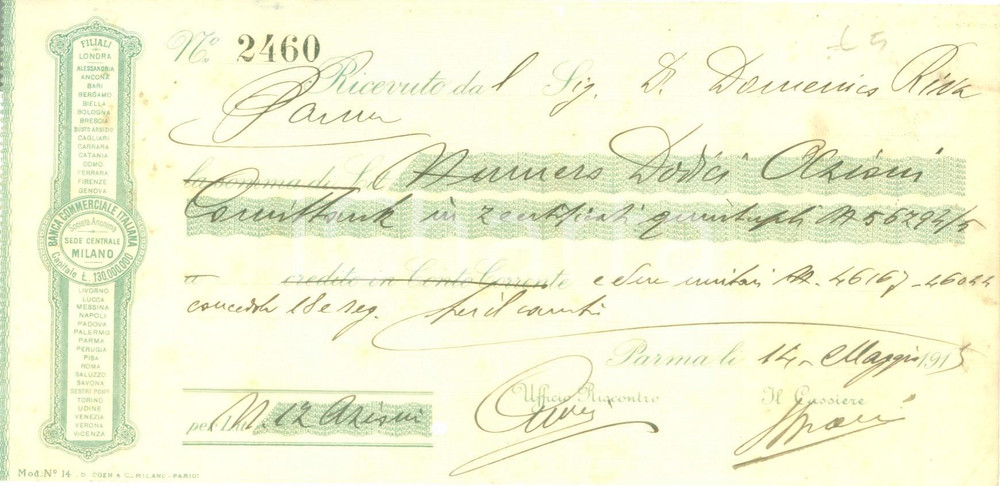 FILIALI
LONDRA
ALESSANDRIA
ANCONA
BARI
BERGAMO
BIELLA
BOLOGNA
BRESCIA
BUSTO ARSIZIO
CAGLIARI
CARRARA
CATANIA
COMO
FERRARA
FIRENZE
GENOVA
BANCA COMMERCIALE ITALIANA
Società Anonima
SEDE CENTRALE
MILANO
Capitale L. 130.000.000
LIVORNO
LUCCA
MESSINA
NAPOLI
PADOVA
PALERMO
PARMA
PERUGIA
PISA
ROMA
SALUZZO
SAVONA
SESTRI PON.
TORINO
UDINE
VENEZIA
VERONA
VICENZA
Nº 2460
£ 5
Ricevuto dal Sig. D. Domenico Riva
Parma
la somma di L. Numero Dodici Azioni
Comitbank in 2 certificati quintupli N 56794/5
a credito in Conto Corrente e due unitari N. 46167-46044
cedola 18 e seg.
Parma li 14 Maggio 1915
Ufficio Riscontro
Il Cassiere
per N. 12 Azioni
Mod. Nº 14 - MILANO - PARIGI